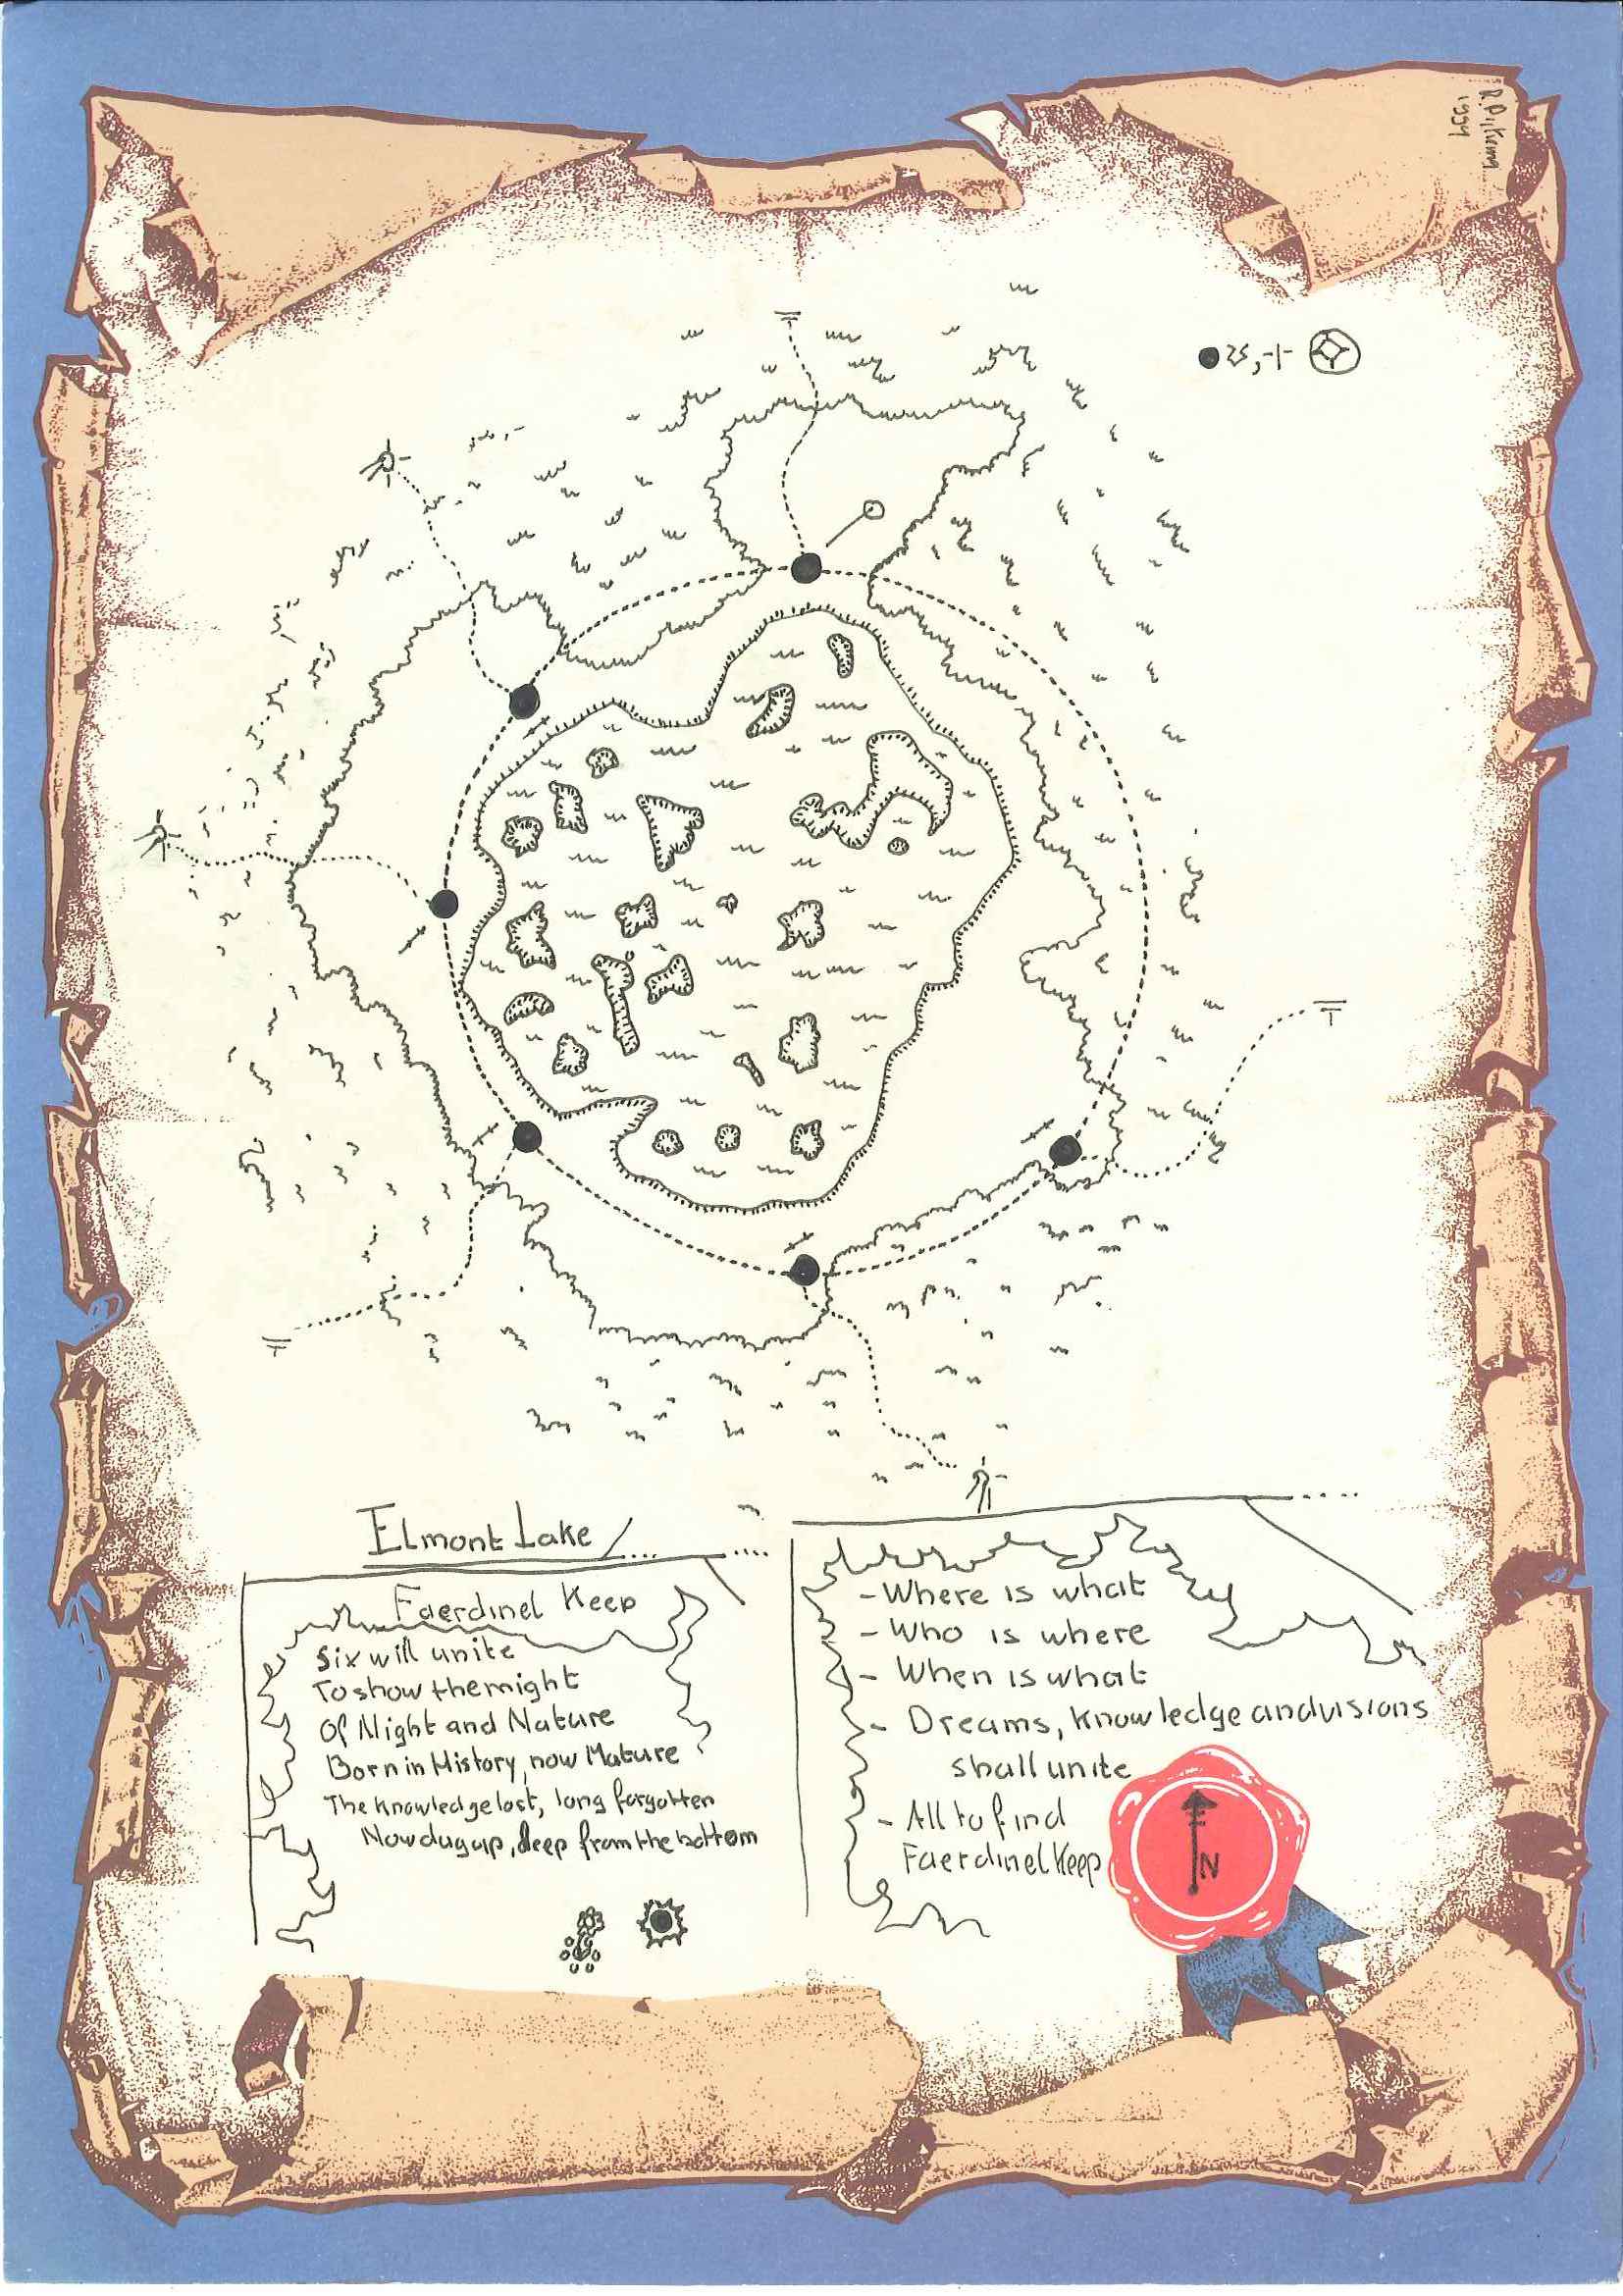 1994
Elmont Lake
Faerdinel Keep
Six will unite
To show the might
Of Night and Nature
Born in History, now Mature
The knowledge lost, long forgotten
Now dug up, deep from the bottom
- Where is what
- Who is where
- When is what
- Dreams, knowledge and visions
shall unite
- All to find
Faerdinel Keep
N